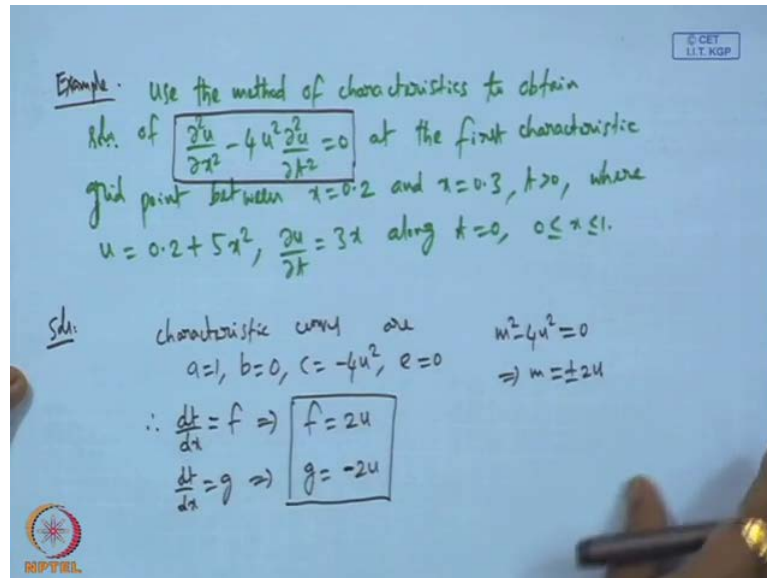 © CET
I.I.T. KGP
Example. Use the method of characteristics to obtain
Sln. of ∂²u/∂x² - 4u² ∂²u/∂t² = 0 at the first characteristic
grid point between x=0.2 and x=0.3, t>0, where
u = 0.2 + 5x², ∂u/∂t = 3x along t=0, 0≤x≤1.
Sln: characteristic curves are m²-4u²=0
a=1, b=0, c=-4u², e=0 ⇒ m=±2u
∴ dt/dx = f ⇒ f=2u
dt/dx = g ⇒ g=-2u
NPTEL